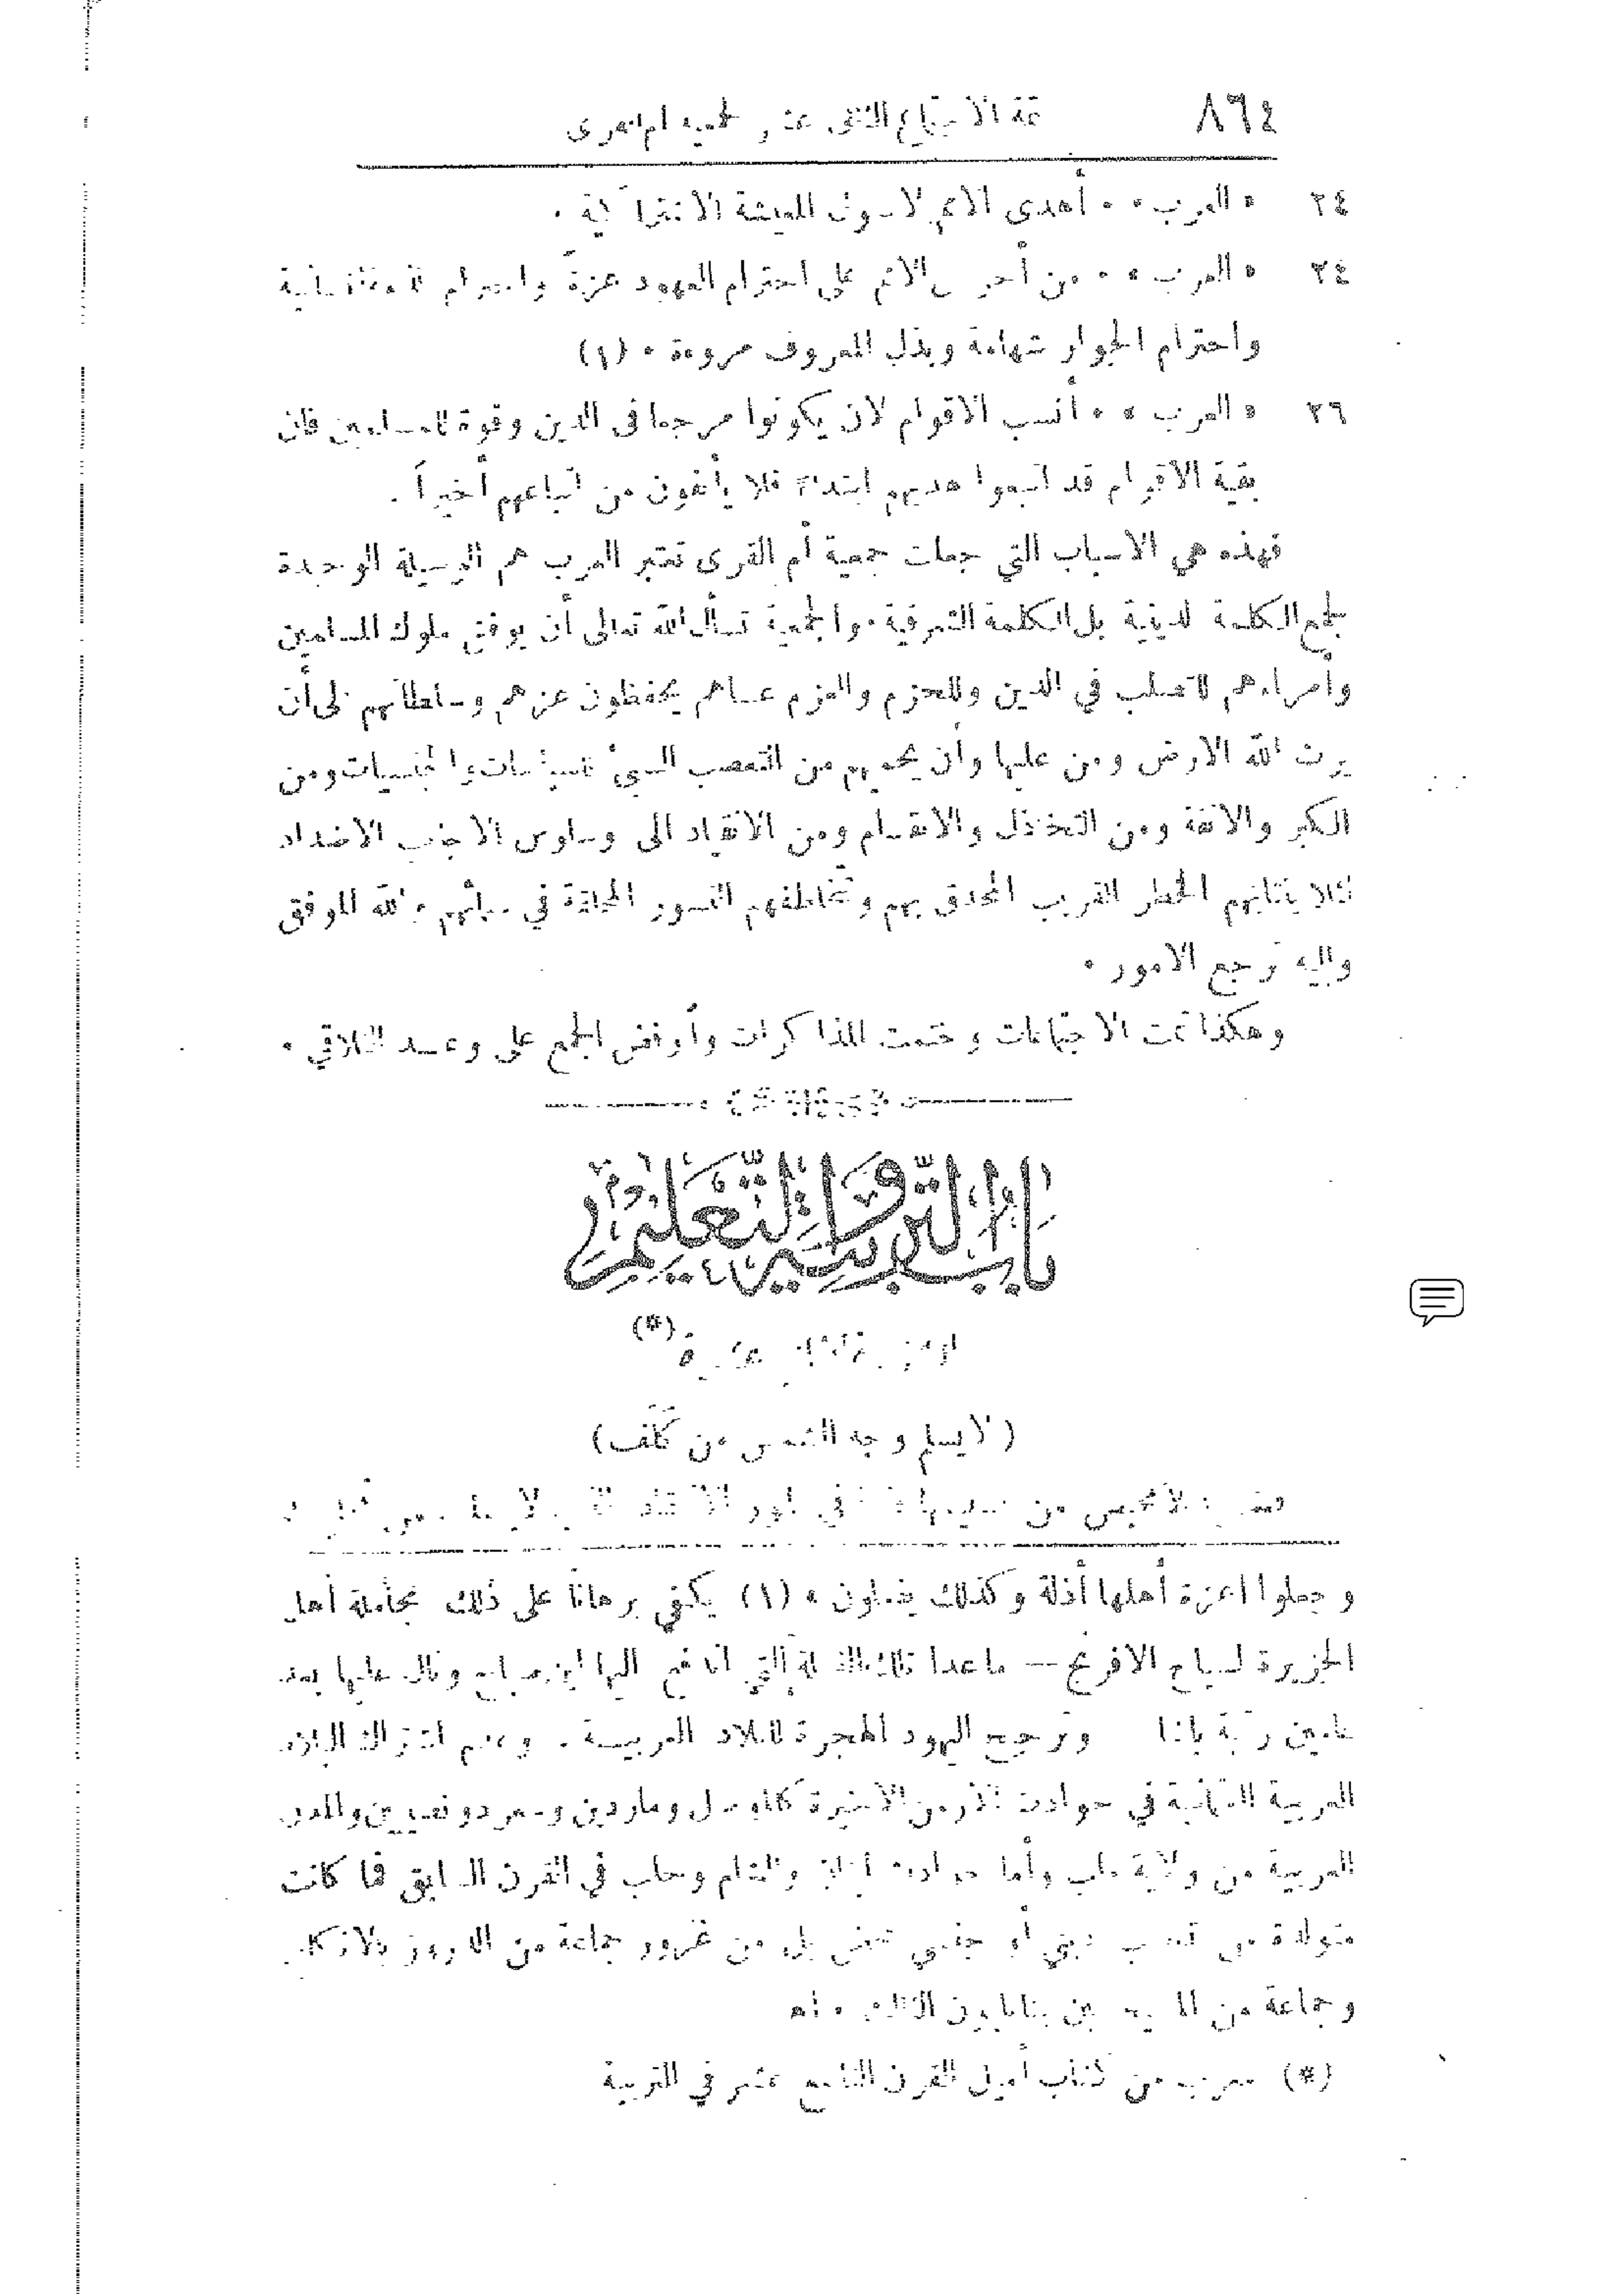 ٨٦٤ تتمة الاجتماع الثاني عشر لجمعية ام القرى
٢٤ « العرب » ٠ أهدى الامم لاصول المعيشة الاشتراكية ٠
٢٤ « العرب » ٠ من أحرص الامم على احترام العهود عزة واحترام الذمة انسانية
واحترام الجوار شهامة وبذل المعروف مروءة ٠ (١)
٢٦ « العرب » ٠ أنسب الاقوام لان يكونوا مرجعا في الدين وقوة للمسلمين فان
بقية الاقوام قد اتبعوا هديهم ابتداء فلا يأنفون من اتباعهم أخيراً .
فهذه هي الاسباب التي جعلت جمعية أم القرى تعتبر العرب هم الوسيلة الوحيدة
لجمع الكلمة الدينية بل الكلمة الشرقية ٠ والجمعية تسأل الله تعالى أن يوفق ملوك المسلمين
وأمراءهم للتصلب في الدين وللحزم والعزم عساهم يحفظون عزهم وسلطانهم الى أن
يرث الله الارض ومن عليها وأن يحميهم من التعصب السيئ للسياسات والجنسيات ومن
الكبر والانفة ومن التخاذل والانقسام ومن الانقياد الى وساوس الاجانب الاضداد
لئلا ينتابهم الخطر القريب المحدق بهم وتتخاطفهم النسور المحلقة في سمائهم والله الموفق
واليه ترجع الامور ٠
وهكذا تمت الاجتماعات وختمت المذاكرات وأوفض الجمع على وعد التلاقي ٠
باب التربية والتعليم
(*)
( لا يسلم وجه الشمس من كَلَف )
من في طور
وجعلوا اعزة أهلها أذلة وكذلك يفعلون ٠ (١) يكفي برهاناً على ذلك مجاملة أهل
الجزيرة لسياح الافرنج — ماعدا تلك التي اندفع اليها ابن صباح ونال عليها بعد
عامين رتبة باشا وترجيح اليهود الهجرة للبلاد العربية . وعدم اشتراك البلاد
العربية العثمانية في حوادث الارمن الاخيرة كالموصل وماردين وسعرد ونصيبين والمدن
العربية من ولاية حلب وأما حوادث لبنان والشام وحلب في القرن السابق فما كانت
متولدة من تعصب ديني أو جنسي محض بل من غرور جماعة من الدروز بالانكليز
وجماعة من المسيحيين بنابليون الثالث ٠ اهـ
(*) معرب من كتاب أميل القرن التاسع عشر في التربية